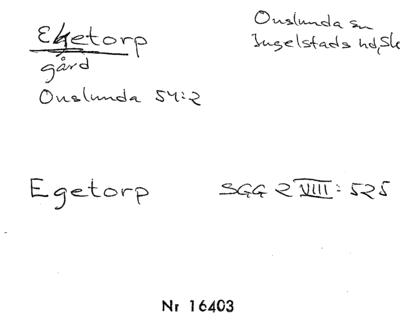 Eketorp
gård
Onslunda 54:2
Onslunda sn
Ingelstads hd, Sk
Egetorp
SGG 2 VIII: 525
Nr 16403